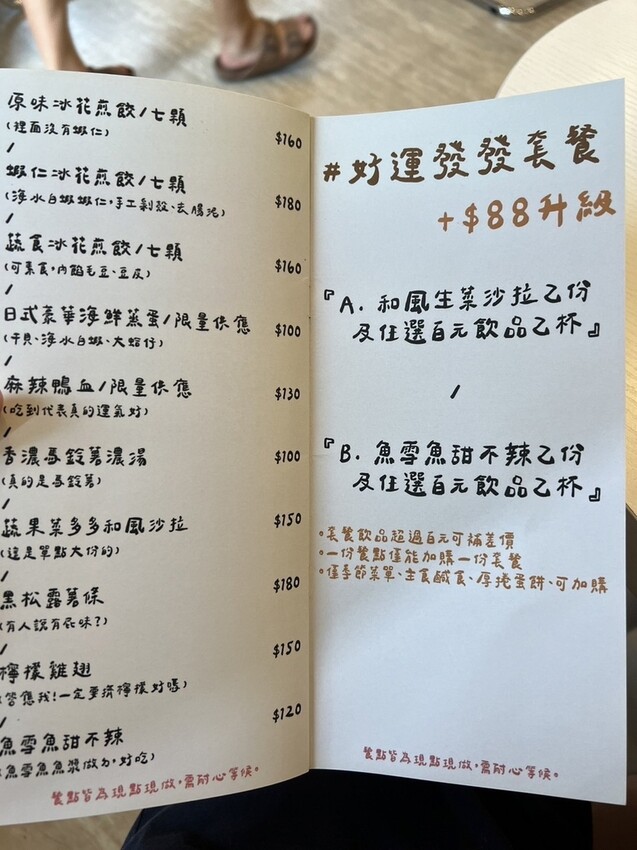 原味冰花煎餃/七顆
(裡面沒有蝦仁)
$160
/
蝦仁冰花煎餃/七顆
(海水白蝦蝦仁,手工剝殼、去腸泥)
$180
/
蔬食冰花煎餃/七顆
(可素食,內餡毛豆、豆皮)
$160
/
日式豪華海鮮蒸蛋/限量供應
(干貝、海水白蝦、大蛤仔)
$100
/
麻辣鴨血/限量供應
(吃到代表真的運氣好)
$130
/
香濃馬鈴薯濃湯
(真的是馬鈴薯)
$100
/
蔬果菜多多和風沙拉
(這是單點大份的)
$150
/
黑松露薯條
(有人說有屁味?)
$180
/
檸檬雞翅
(答應我!一定要擠檸檬好嗎)
$150
/
魚雪魚甜不辣
(魚雪魚魚漿做ㄉ,好吃)
$120
餐點皆為現點現做,需耐心等候。
#好運發發套餐
+$88升級
『A. 和風生菜沙拉乙份
及任選百元飲品乙杯』
/
『B. 魚雪魚甜不辣乙份
及任選百元飲品乙杯』
◦套餐飲品超過百元可補差價
◦一份餐點僅能加購一份套餐
◦僅季節菜單、主食鹹食、厚捲蛋餅、可加購
餐點皆為現點現做,需耐心等候。